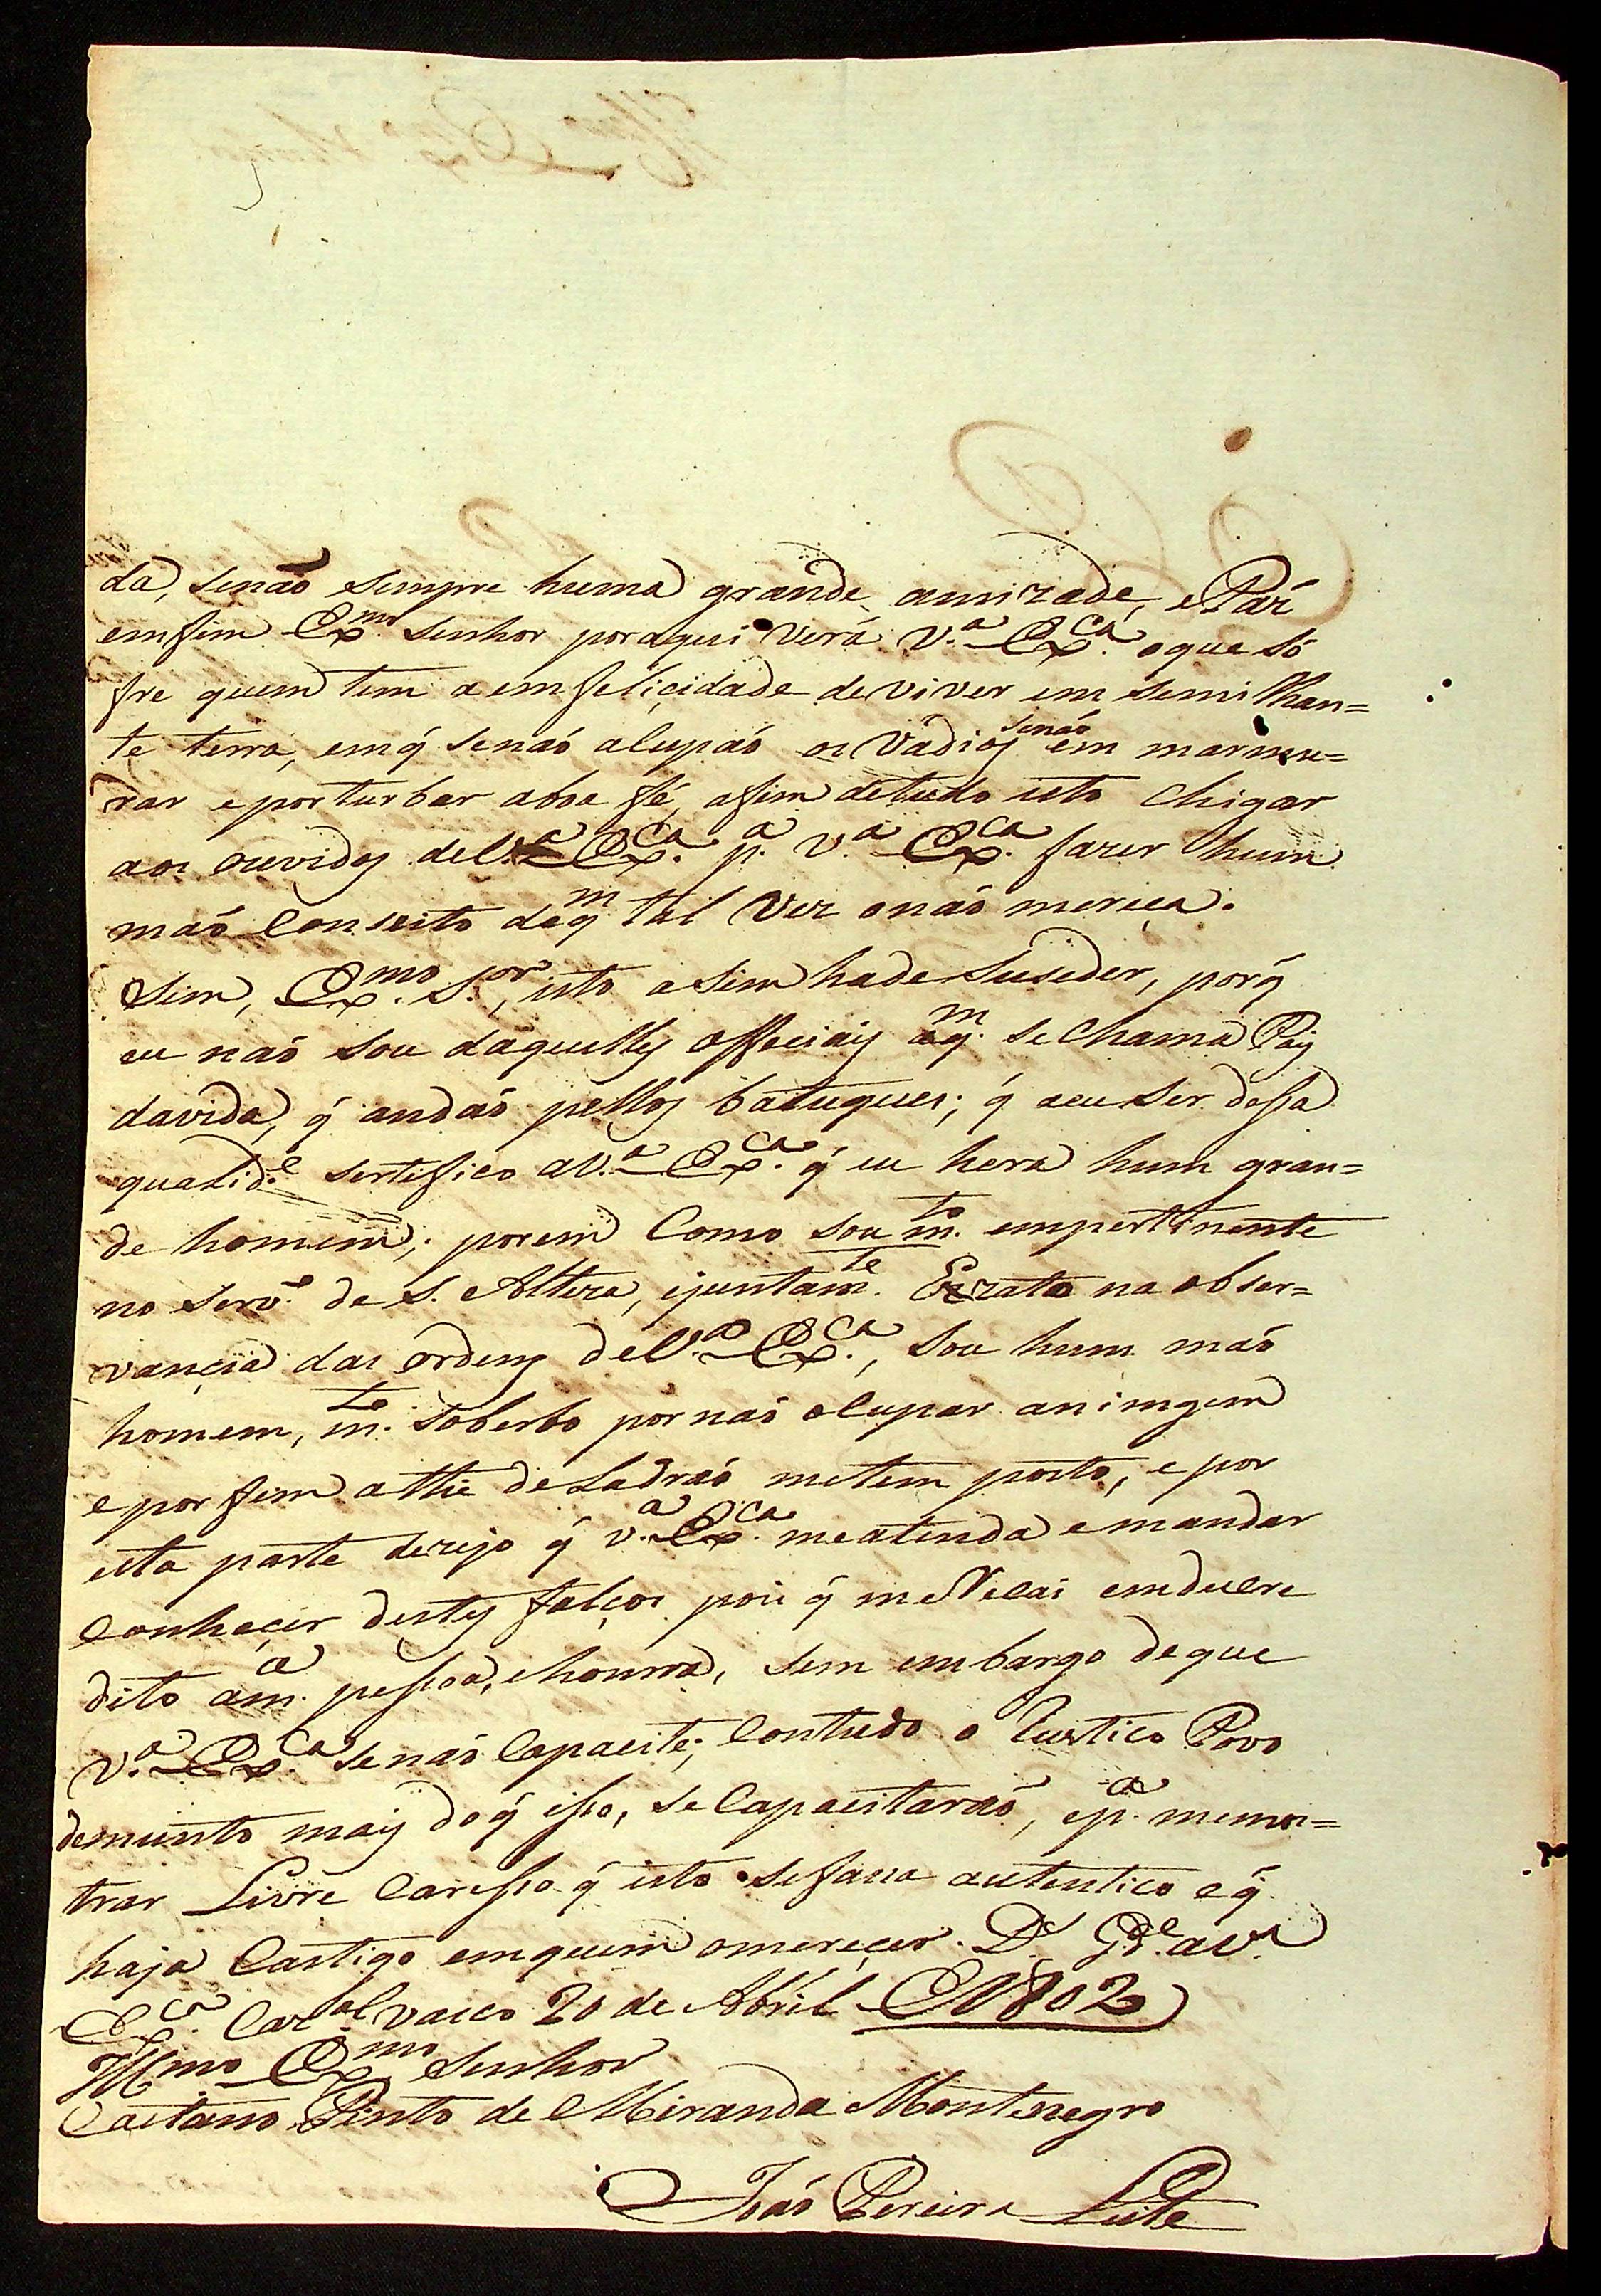 da, senaõ sempre huma grande amizade, e Páz
emfim Exmo. Senhor por aqui verá V.a Ex.ca o que só
fre quem tem a emfeliçidade de viver em semilhan=
te terra, em q̃ senaõ acupaõ os Vadios senaõ em marmu=
rar e porturbar aboa fé, afim detudo isto chigar
aos ouvidos de V.a Ex.ca p.a V.a Ex.ca fazer hum
máo Conseito de q.m tal vez onaõ mereça.
Sim, Ex.mo S.or, isto asim hade suseder, porq̃
eu naõ sou daquelles offeciais a q.m se chama Pay
davida, q̃ andaõ pellos batuques; q̃ aeu ser desa
qualid.e sertifico a V.a Ex.ca q̃ eu hera hum gran=
de homem; porem Como sou m.to empertinente
no serv.o de S. Alteza, ejuntam.te Ezato na obser=
vançia das ordens de V.a Ex.ca, sou hum máo
homem, m.to soberbo por naõ acupar aningem
epor fim athe de Ladraõ metem posto, e por
esta parte dezejo q̃ V.a Ex.ca meatenda emandar
Conheçer destes falços pois q̃ me Recai emdescre
dito a m.a pesoa, ehonrra, sem embargo deque
V.a Ex.ca senaõ Capacite; Contudo o Rustico Povo
demuinto mais doq̃ iso, se Capacitaraõ, ep.a memos=
trar Livre Careso q̃ isto se fasa autentico e q̃
haja Castigo emquem omereçer. D.s G.de a V.a
Ex.ca Cazalvasco 20 de Abril de 1802
Illmo Exmo Senhor
Caetano Pinto de Miranda Montenegro
Joaõ Pereira Leite